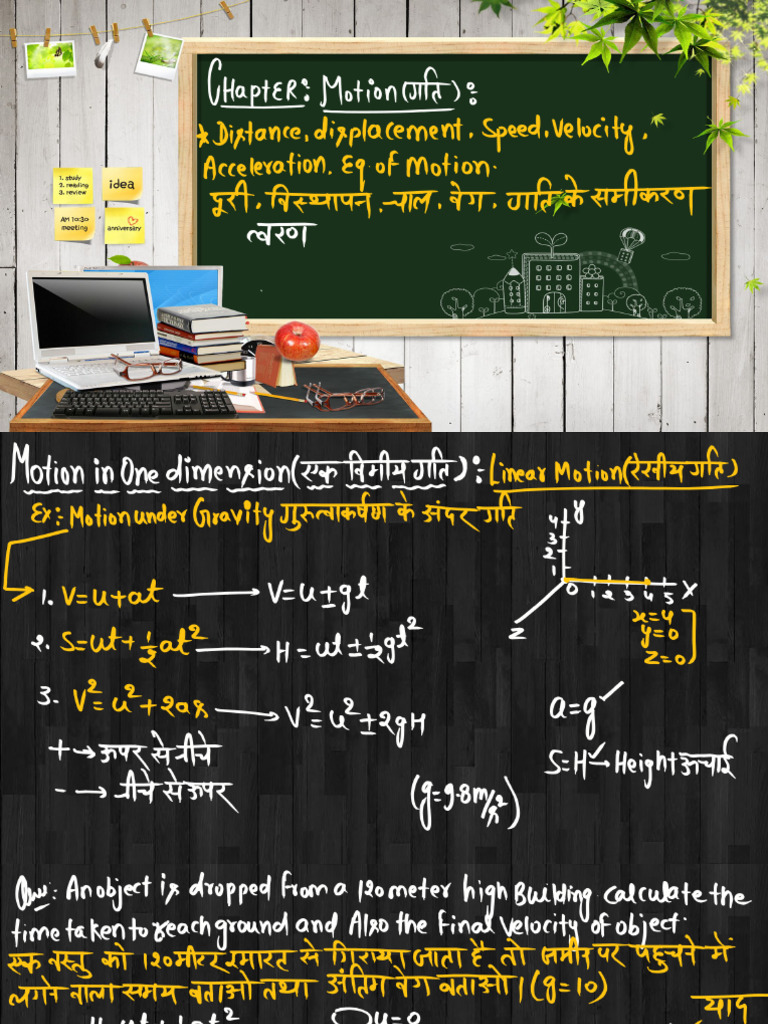 CHapter: Motion(गति):
* Distance, displacement, Speed, Velocity,
Acceleration. Eq of Motion.
दूरी, विस्थापन, चाल, वेग, गति के समीकरण
त्वरण
1. study
2. reading
3. review
idea
AM 10:30
meeting
anniversary
Motion in One dimension(एक विमीय गति): Linear Motion(रेखीय गति)
Ex: Motion under Gravity गुरुत्वाकर्षण के अंदर गति
1. V=u+at → V=u±gt
2. S=ut+½at² → H=ut±½gt²
3. V²=u²+2as → V²=u²±2gH
+→ऊपर से नीचे
-→ नीचे से ऊपर
y
4
3
2
1
0 1 2 3 4 5 X
Z
x=4
y=0
z=0
a=g✓
S=H✓→Height ऊचाई
(g=9.8m/s²)
Ques: An object is dropped from a 120 meter high Building calculate the
time taken to reach ground and Also the Final Velocity of object.
एक वस्तु को 120मीटर इमारत से गिराया जाता है, तो जमीन पर पहुचने में
लगने वाला समय बताओ तथा अंतिम वेग बताओ। (g=10)
याद
u=0